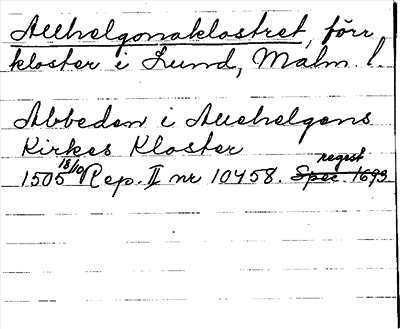 Allhelgonaklostret, förr
kloster i Lund, Malm. l.
Abbeden i Allehelgens
Kirkes Kloster
1505 18/10 Rep. II nr 10458. Spec. 1693 regest